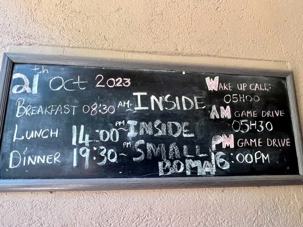 21th Oct 2023
BREAKFAST 08:30 AM INSIDE
LUNCH 14:00 PM INSIDE
DINNER 19:30 PM SMALL BOMA
WAKE UP CALL:
05H00
AM GAME DRIVE
05H30
PM GAME DRIVE
16:00PM